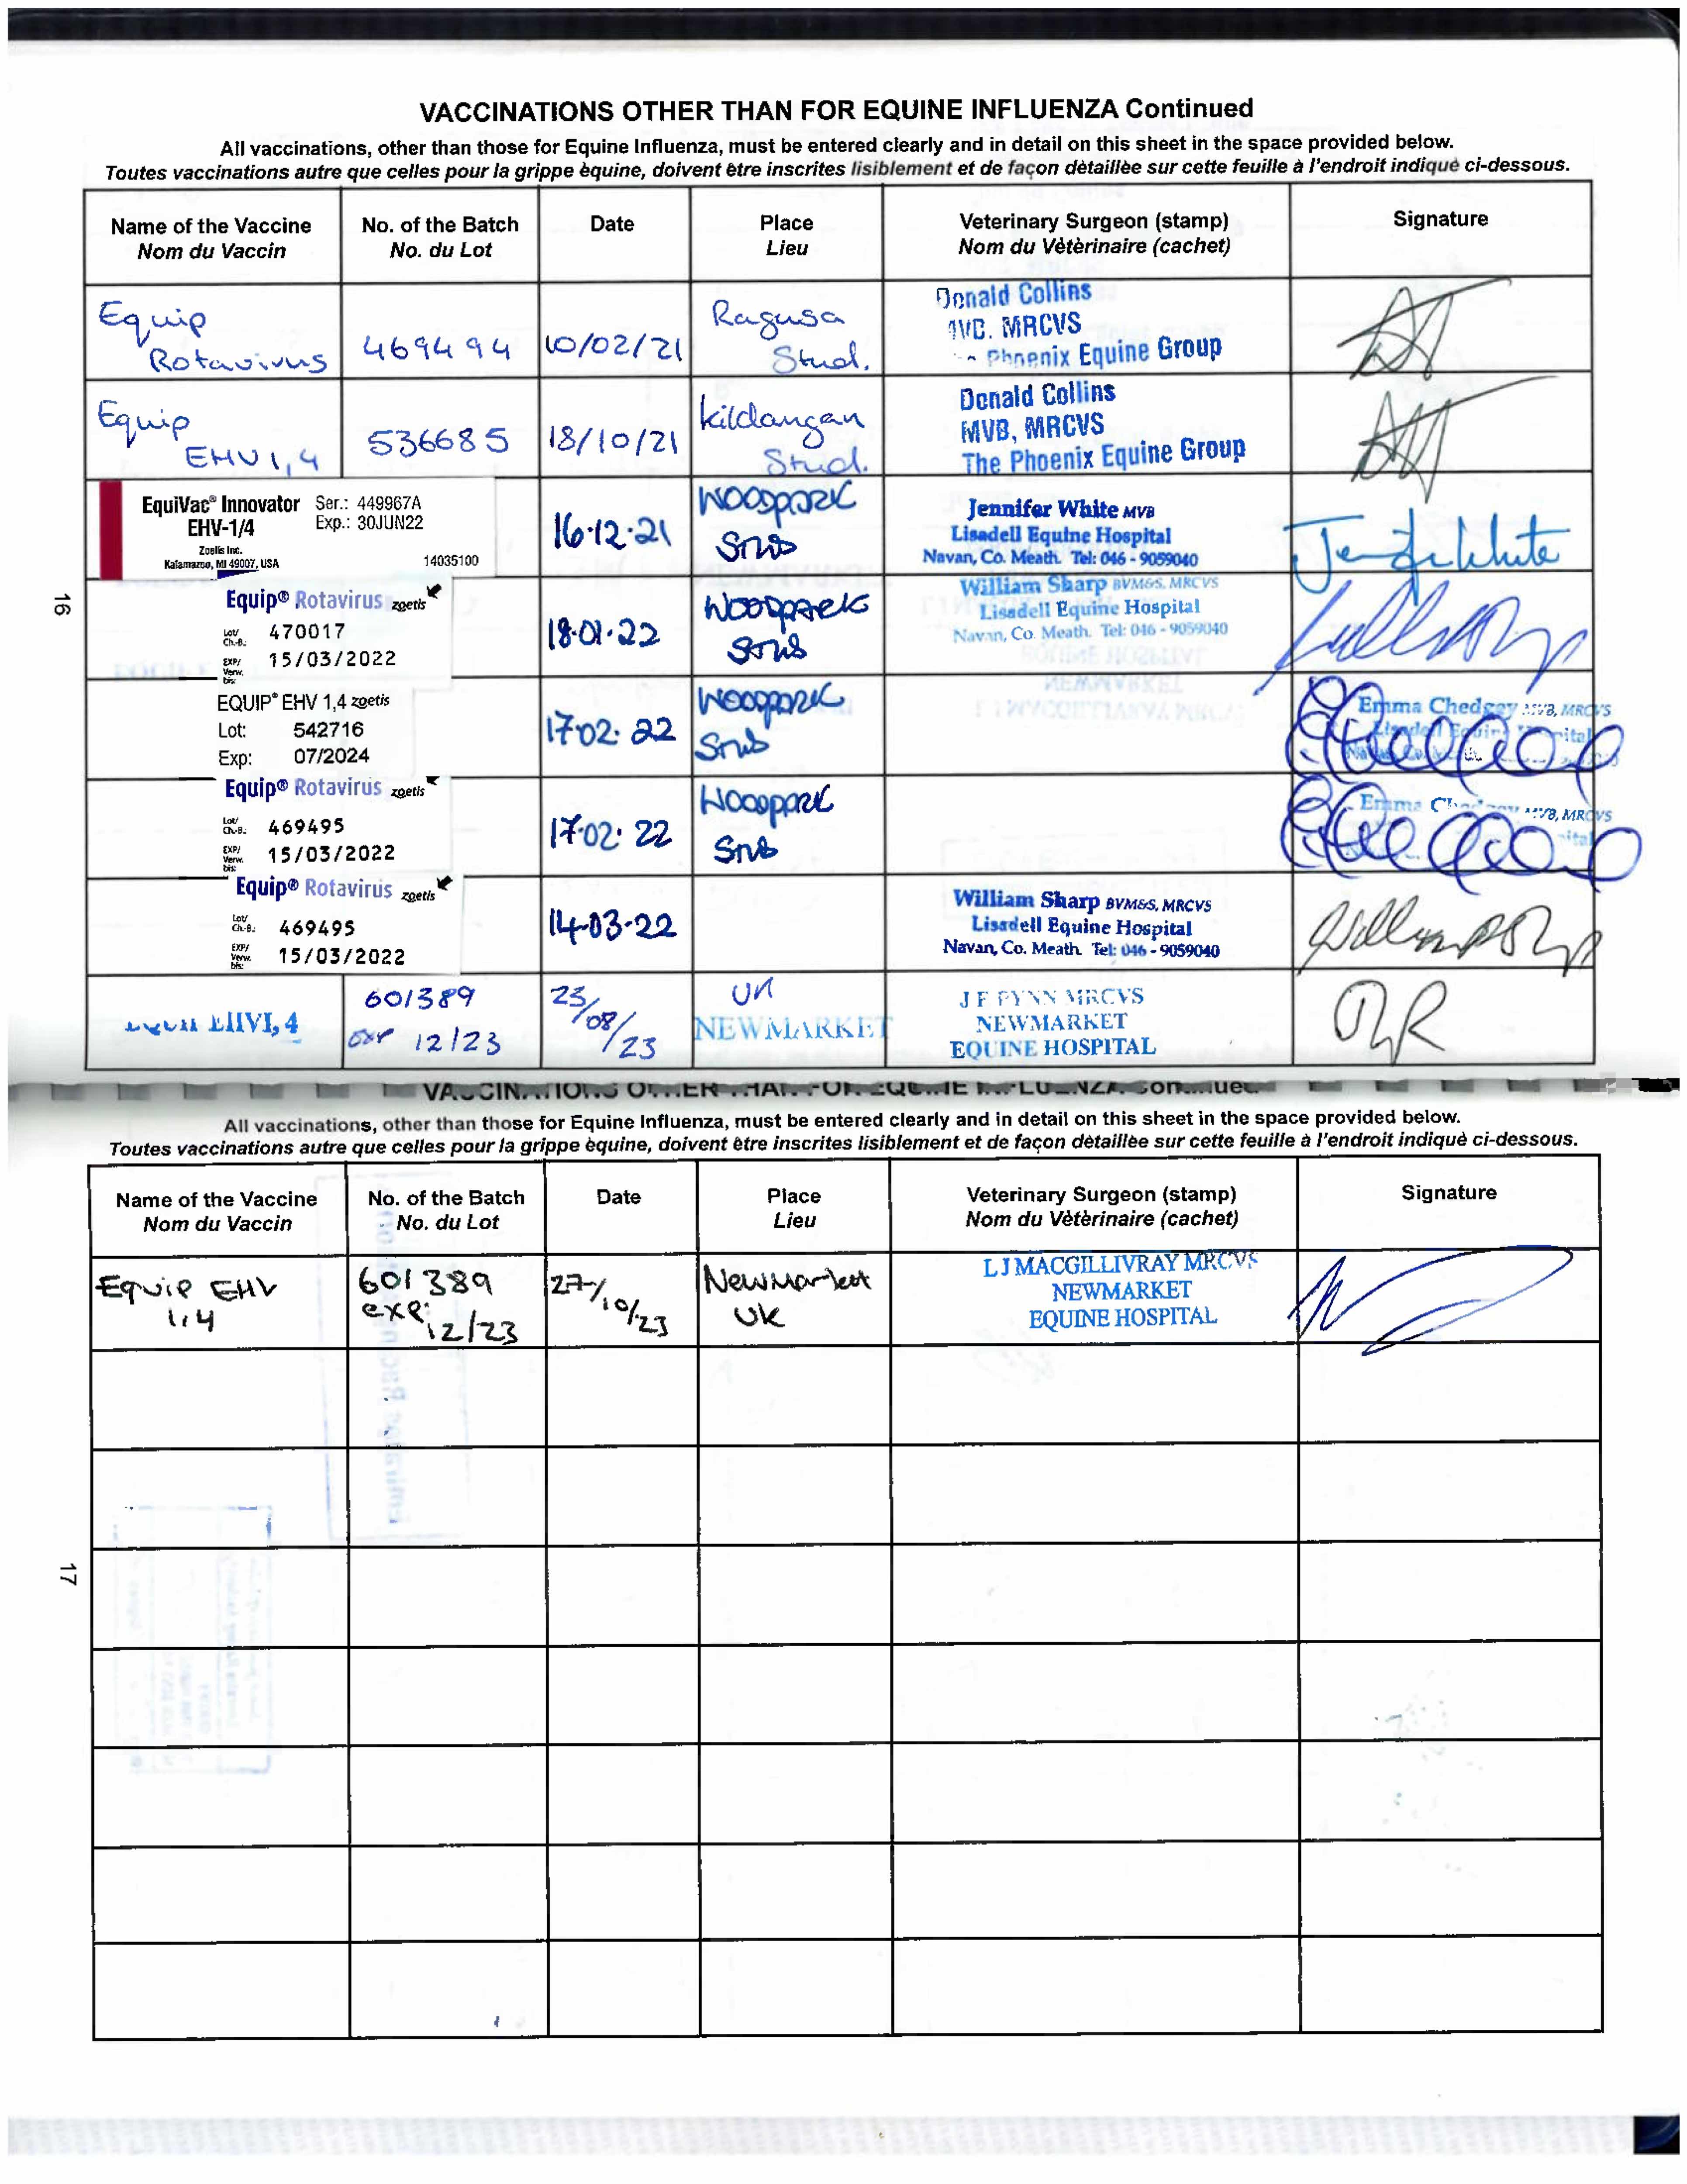 VACCINATIONS OTHER THAN FOR EQUINE INFLUENZA Continued
All vaccinations, other than those for Equine Influenza, must be entered clearly and in detail on this sheet in the space provided below.
Toutes vaccinations autre que celles pour la grippe èquine, doivent être inscrites lisiblement et de façon dètaillèe sur cette feuille à l'endroit indiquè ci-dessous.
Name of the Vaccine
Nom du Vaccin
No. of the Batch
No. du Lot
Date
Place
Lieu
Veterinary Surgeon (stamp)
Nom du Vètèrinaire (cachet)
Signature
Equip
Rotavirus
469494
10/02/21
Ragusa
Stud.
Donald Collins
MRCVS
Phoenix Equine Group
Equip
EHV1,4
536685
18/10/21
Kildangan
Stud.
Donald Collins
MVB, MRCVS
The Phoenix Equine Group
EquiVac® Innovator
EHV-1/4
Zoetis Inc.
Kalamazoo, MI 49007, USA
Ser.: 449967A
Exp.: 30JUN22
14035100
16.12.21
WOODPARK
STUD
Jennifer White MVB
Lisadell Equine Hospital
Navan, Co. Meath. Tel: 046 - 9059040
Equip® Rotavirus zoetis
Lot/
Ch.-B.: 470017
EXP/
Verw.
bis: 15/03/2022
18.01.22
WOODPARK
STUD
William Sharp BVM&S, MRCVS
Lisadell Equine Hospital
Navan, Co. Meath. Tel: 046 - 9059040
EQUIP® EHV 1,4 zoetis
Lot: 542716
Exp: 07/2024
17.02.22
WOODPARK
STUD
Emma Chedgey MVB, MRCVS
Equip® Rotavirus zoetis
Lot/
Ch.-B.: 469495
EXP/
Verw.
bis: 15/03/2022
17.02.22
WOODPARK
STUD
Emma MVB, MRCVS
Equip® Rotavirus zoetis
Lot/
Ch.-B.: 469495
EXP/
Verw.
bis: 15/03/2022
14.03.22
William Sharp BVM&S, MRCVS
Lisadell Equine Hospital
Navan, Co. Meath. Tel: 046 - 9059040
4
601389
exp 12/23
23/08/23
UK
NEWMARKET
MRCVS
NEWMARKET
EQUINE HOSPITAL
16
All vaccinations, other than those for Equine Influenza, must be entered clearly and in detail on this sheet in the space provided below.
Toutes vaccinations autre que celles pour la grippe èquine, doivent être inscrites lisiblement et de façon dètaillèe sur cette feuille à l'endroit indiquè ci-dessous.
Name of the Vaccine
Nom du Vaccin
No. of the Batch
No. du Lot
Date
Place
Lieu
Veterinary Surgeon (stamp)
Nom du Vètèrinaire (cachet)
Signature
Equip EHV
1,4
601389
exp:
12/23
27/10/23
Newmarket
UK
L J MACGILLIVRAY MRCVS
NEWMARKET
EQUINE HOSPITAL
17